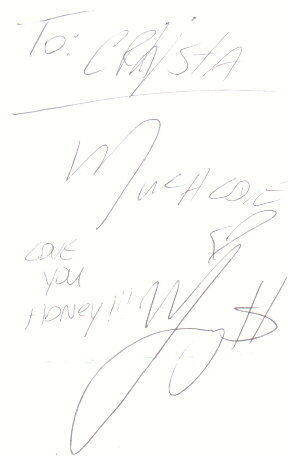 To: CRYSTA
MUCH LOVE
LOVE
YOU
HONEY!!!